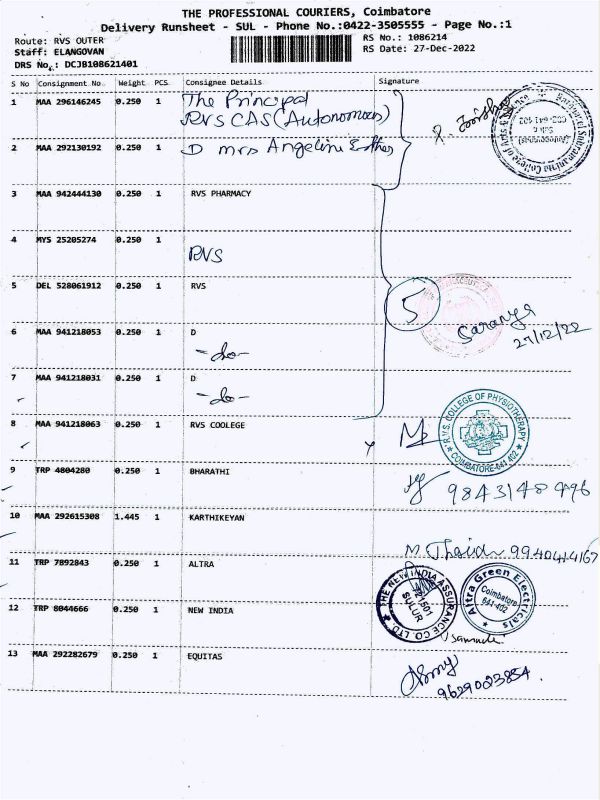 THE PROFESSIONAL COURIERS, Coimbatore
Delivery Runsheet - SUL - Phone No.:0422-3505555 - Page No.:1
Route: RVS OUTER
RS No.: 1086214
Staff: ELANGOVAN
RS Date: 27-Dec-2022
DRS No.: DCJB108621401
S No Consignment No Weight PCS Consignee Details Signature
1 MAA 296146245 0.250 1 The Principal
RVS CAS (Autonomous)
2 MAA 292130192 0.250 1 D Mrs Angeline Esther
3 MAA 942444130 0.250 1 RVS PHARMACY
4 MYS 25205274 0.250 1
RVS
5 DEL 528061912 0.250 1 RVS
5
Saranya
27/12/22
6 MAA 941218053 0.250 1 D
-do-
7 MAA 941218031 0.250 1 D
-do-
8 MAA 941218063 0.250 1 RVS COOLEGE
R.V.S. COLLEGE OF PHYSIOTHERAPY
COIMBATORE-641 402
9 TRP 4804280 0.250 1 BHARATHI
9843148496
10 MAA 292615308 1.445 1 KARTHIKEYAN
9940414167
11 TRP 7892843 0.250 1 ALTRA
THE NEW INDIA ASSURANCE CO. LTD.
SULUR
Altra Green Electricals
Coimbatore
641-402
12 TRP 8044666 0.250 1 NEW INDIA
13 MAA 292282679 0.250 1 EQUITAS
9629023854